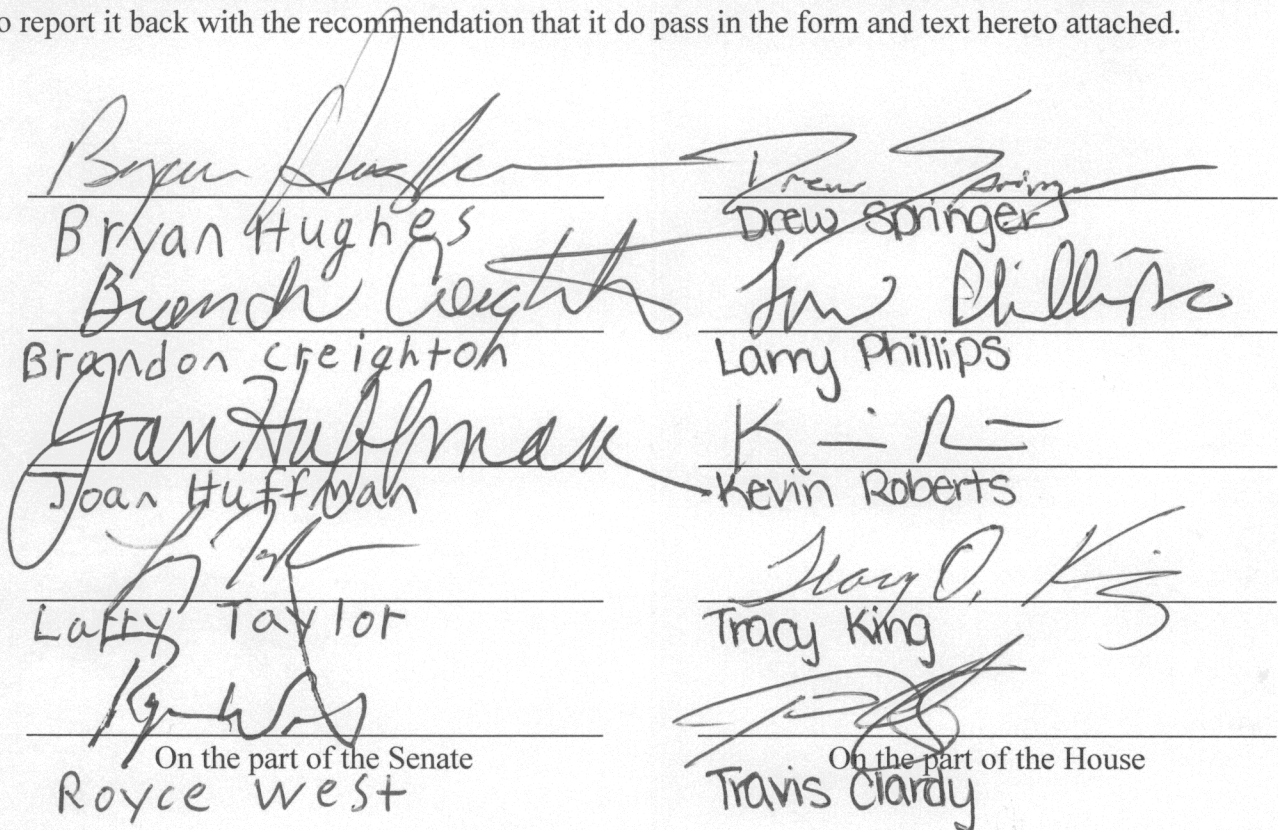 o report it back with the recommendation that it do pass in the form and text hereto attached.
Bryan Hughes
Bryan Hughes
Brandon Creighton
Brandon Creighton
Joan Huffman
Joan Huffman
Larry Taylor
Larry Taylor
Royce West
On the part of the Senate
Royce West
Drew Springer
Drew Springer
Larry Phillips
Larry Phillips
Kevin Roberts
Tracy O. King
Tracy King
On the part of the House
Travis Clardy